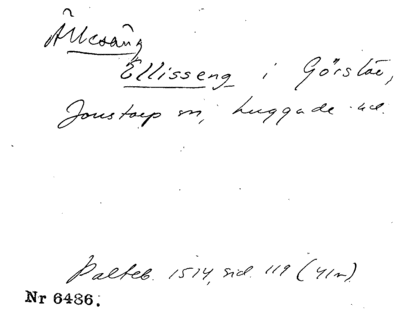 Ällesäng
Ellisseng i Görstäe,
Jonstorp sn, huggade
Palteb. 1514, sid. 119 (41n).
Nr 6486.